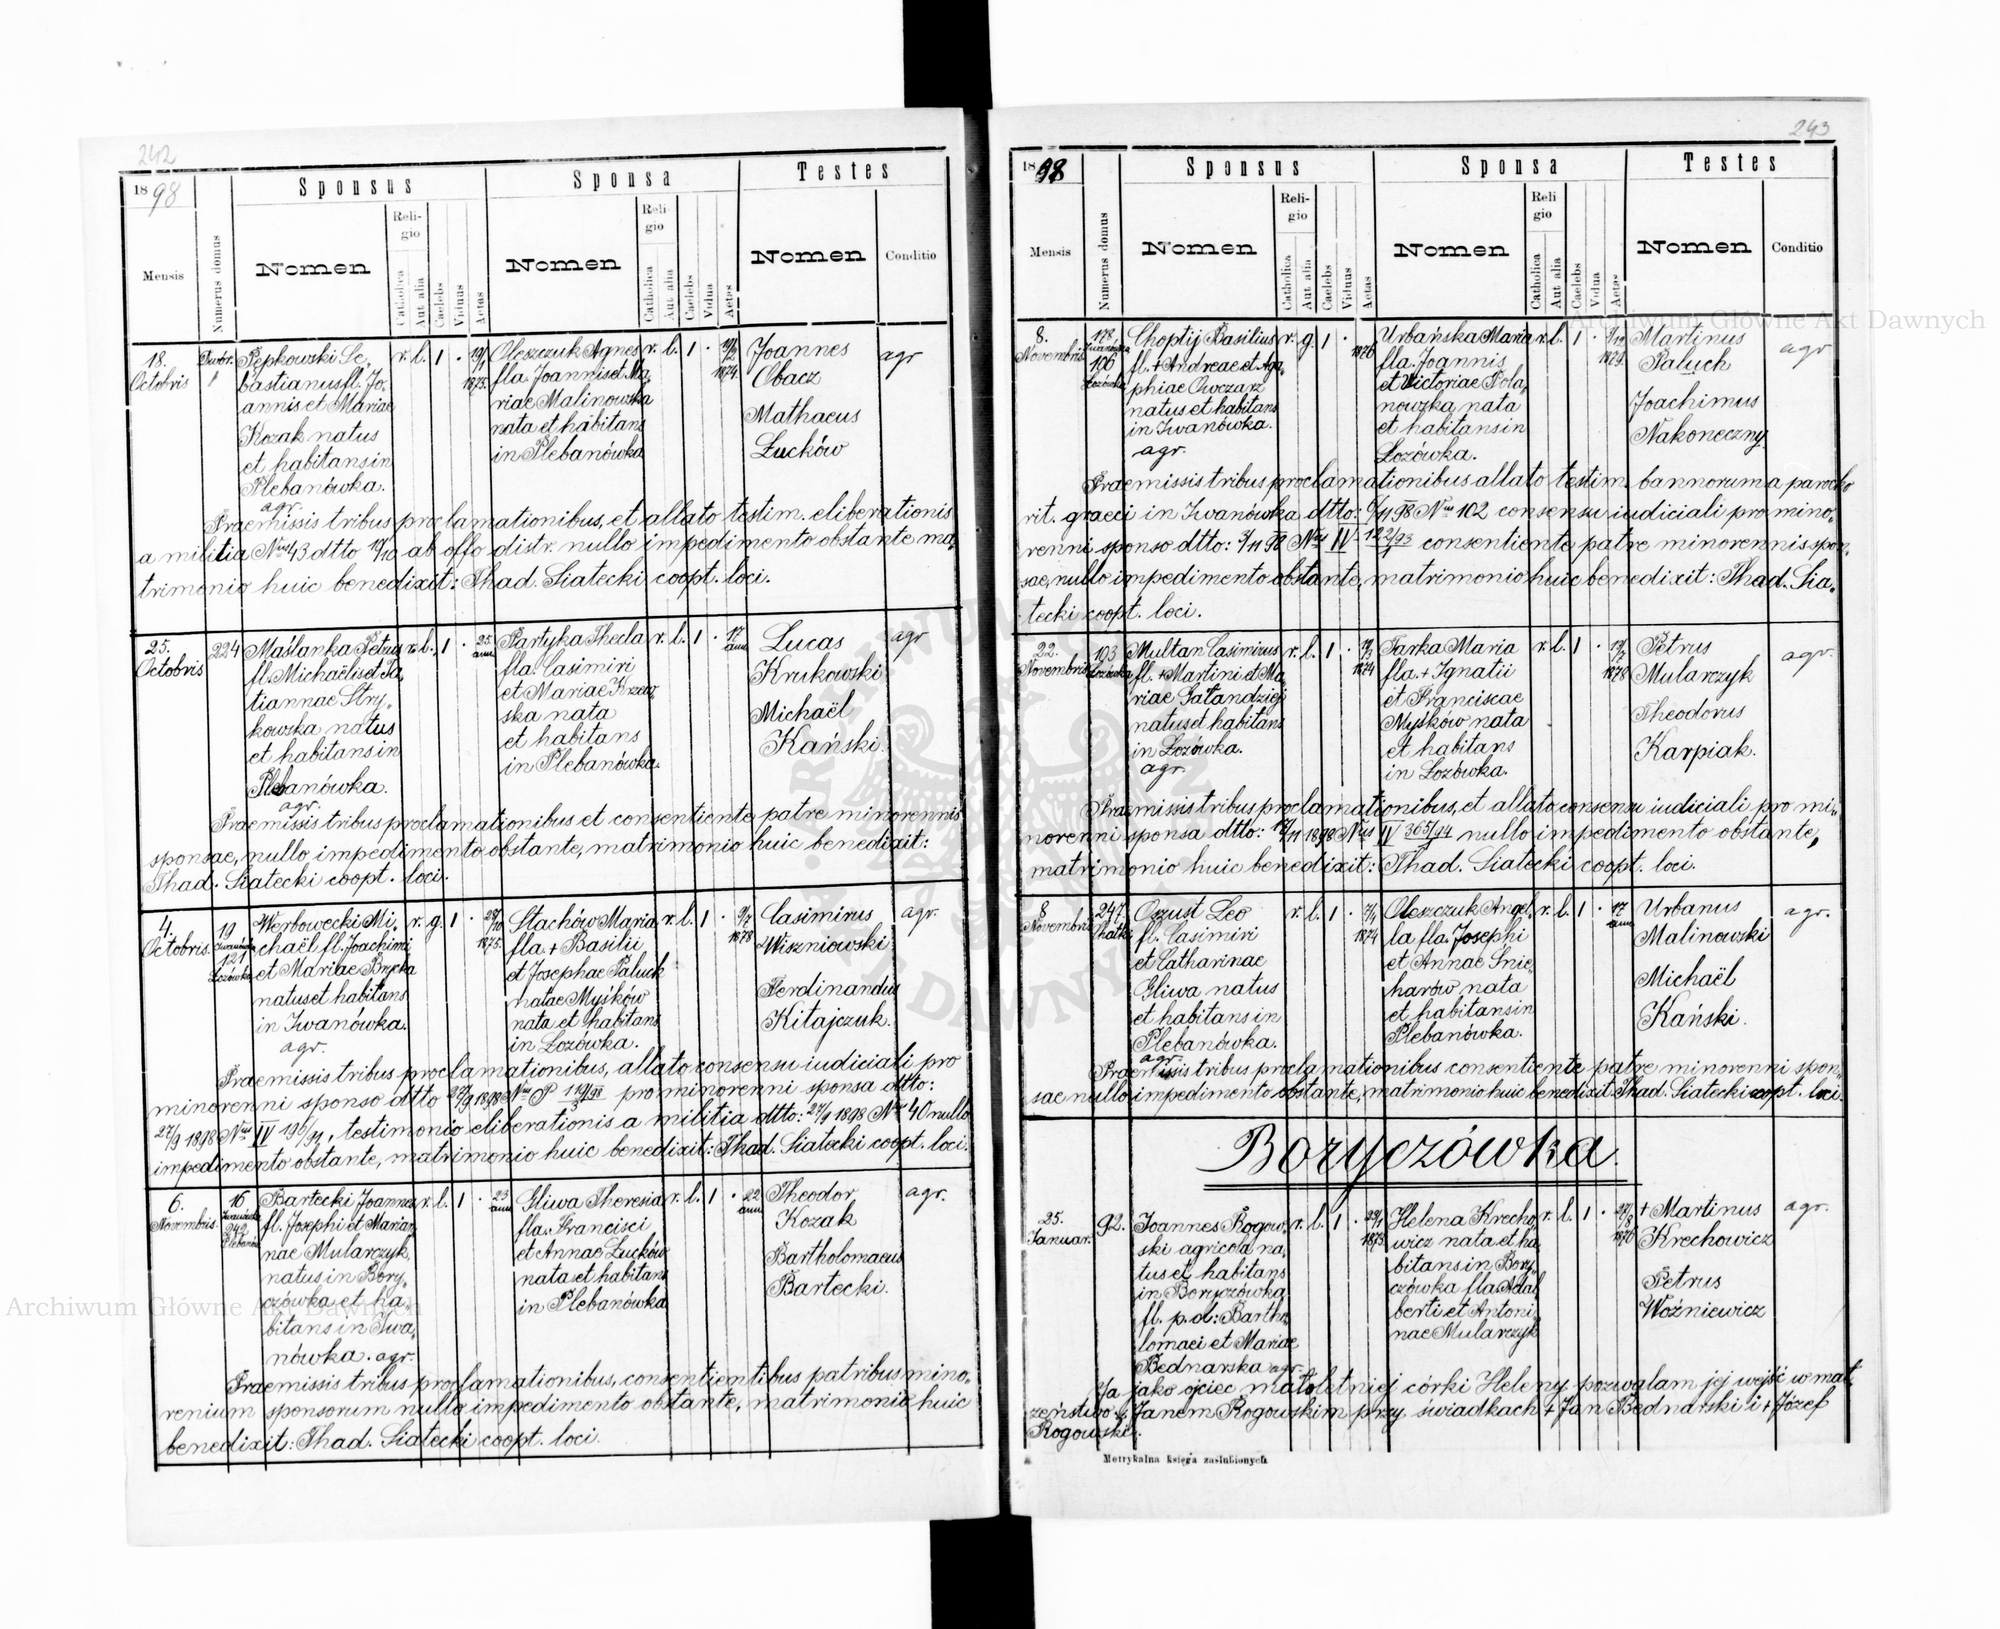 242
1898
Sponsus
Sponsa
Testes
Mensis
Numerus domus
Nomen
Religio
Catholica
Aut alia
Caelebs
Viduus
Aetas
Nomen
Religio
Catholica
Aut alia
Caelebs
Vidua
Aetas
Nomen
Conditio
18.
Octobris
Pepkowski Se,
bastianus fl. Jo,
annis et Mariae
Kozak natus
et habitans in
Plebanówka.
agr.
r. l. 1 .
1875.
Oleszczuk Agnes
fla. Joannis et Ma,
riae Malinowska
nata et habitans
in Plebanówka
r. l. 1 .
1874.
Joannes
Obacz
Mathaeus
Łucków
agr
Praemissis tribus proclamationibus, et allato testim. eliberationis
a militia Nrus 43 dtto 10/10 ab offo distr. nullo impedimento obstante ma,
trimonio huic benedixit: Thad. Siatecki coopt. loci.
25.
Octobris
224
Maślanka Petrus
fl. Michaëlis et Ta,
tiannae Stry,
kowska natus
et habitans in
Plebanówka.
agr.
r. l. 1 .
25.
ann
Partyka Thecla
fla. Casimiri
et Mariae Krzew,
ska nata
et habitans
in Plebanówka.
r. l. 1 .
17
ann
Lucas
Krukowski
Michaël
Kański.
agr
Praemissis tribus proclamationibus et consentiente patre minorennis
sponsae, nullo impedimento obstante, matrimonio huic benedixit:
Thad. Siatecki coopt. loci.
4.
Octobris.
19
Iwanówka
121
Łozówka
Werbowecki Mi,
chaël fl. Joachimi
et Mariae Brycka
natus et habitans
in Iwanówka.
agr.
r. g. 1 .
28/10
1875.
Stachów Maria
fla. + Basilii
et Josephae Paluck
natae Myśków
nata et habitans
in Łozówka.
r. l. 1 .
9/7
1878
Casimirus
Wiszniowski
Ferdinandus
Kitajczuk.
agr.
Praemissis tribus proclamationibus, allato consensu iudiciali pro
minorenni sponso dtto 22/9 1898 Nrus P 119/98 pro minorenni sponsa dtto:
27/9 1898 Nrus IV 196/91, testimonio eliberationis a militia dtto: 27/9 1898 Nrus 40 nullo
impedimento obstante, matrimonio huic benedixit: Thad. Siatecki coopt. loci.
6.
Novembris.
16
Iwanówka
242
Plebanów
Bartecki Joannes
fl. Josephi et Marian,
nae Mularczyk,
natus in Bory,
czówka et ha,
bitans in Iwa,
nówka. agr.
r. l. 1 .
23
ann
Gliwa Theresia
fla. Francisci
et Annae Łucków
nata et habitans
in Plebanówka
r. l. 1 .
22
ann
Theodor
Kozak
Bartholomaeus
Bartecki.
agr.
Praemissis tribus proclamationibus, consentientibus patribus mino,
renium sponsorum nullo impedimento obstante, matrimonio huic
benedixit: Thad. Siatecki coopt. loci.
243
1898
Sponsus
Sponsa
Testes
Mensis
Numerus domus
Nomen
Religio
Catholica
Aut alia
Caelebs
Viduus
Aetas
Nomen
Religio
Catholica
Aut alia
Caelebs
Vidua
Aetas
Nomen
Conditio
8.
Novembris
178
Iwanówka
106
Łozówka
Choptij Basilius
fl. + Andreae et Aga,
phiae Owczarz
natus et habitans
in Iwanówka.
agr.
r. g. 1 .
1876
Urbańska Maria
fla. Joannis
et Victoriae Pola,
nowska nata
et habitans in
Łozówka.
r. l. 1 .
1879.
Martinus
Paluch
Joachimus
Nakoneczny
agr
Praemissis tribus proclamationibus allato testim. bannorum a parocho
rit. graeci in Iwanówka dtto: 6/11 98 Nrus 102 consensu iudiciali pro mino,
renni sponso dtto: 3/11 98 Nrus IV 122/93 consentiente patre minorennis spon,
sae, nullo impedimento obstante, matrimonio huic benedixit: Thad. Sia,
tecki coopt. loci.
22.
Novembris
103
Łozówka
Multan Casimirus
fl. + Martini et Ma,
riae Gałandziej
natus et habitans
in Łozówka.
agr.
r. l. 1 .
1874
Tarka Maria
fla. + Ignatii
et Franciscae
Myśków nata
et habitans
in Łozówka.
r. l. 1 .
1878
Petrus
Mularczyk
Theodorus
Karpiak.
agr.
Praemissis tribus proclamationibus, et allato consensu iudiciali pro mi,
norenni sponsa dtto: 12/11 1898 Nrus IV 365/94 nullo impedimento obstante,
matrimonio huic benedixit: Thad. Siatecki coopt. loci.
8
Novembris
247.
Chatki
Oszust Leo
fl. Casimiri
et Catharinae
Gliwa natus
et habitans in
Plebanówka.
agr.
r. l. 1 .
1874
Oleszczuk Angel,
la fla. Josephi
et Annae Śnie,
harów nata
et habitans in
Plebanówka.
r. l. 1 .
17
ann
Urbanus
Malinowski
Michaël
Kański.
agr.
Praemissis tribus proclamationibus consentiente patre minorenni spon,
sae nullo impedimento obstante, matrimonio huic benedixit Thad. Siatecki coopt. loci.
Boryczówka.
25.
Januar.
92.
Joannes Rogow,
ski agricola na,
tus et habitans
in Boryczówka
fl. p. d: Bartho,
lomaei et Mariae
Bednarska agr.
r. l. 1 .
29/1
1873
Helena Krecho,
wicz nata et ha,
bitans in Bory,
czówka fla. Adal,
berti et Antoni,
nae Mularczyk
r. l. 1 .
27/8
1876
+ Martinus
Krechowicz
Petrus
Woźniewicz
agr.
Ja jako ojciec małoletniej córki Heleny pozwalam jej wejść w mał,
żeństwo z Janem Rogowskim przy świadkach + Jan Bednarski i + Józef
Rogowski.
Metrykalna księga zaślubionych
Archiwum Główne Akt Dawnych
Archiwum Główne Akt Dawnych
ARCHIWUM GŁÓWNE AKT DAWNYCH